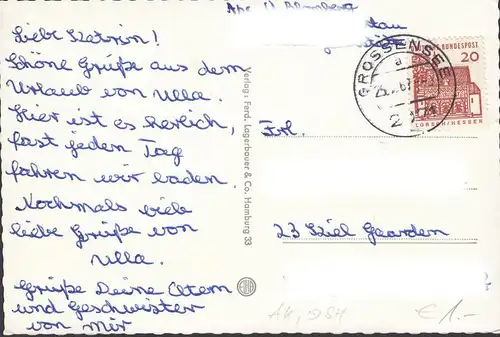 Liebe Katrin!
Schöne Grüße aus dem
Urlaub von Ulla.
Hier ist es herlich,
fast jeden Tag
fahren wir baden.
Nochmals viele
liebe Grüße von
Ulla.
Grüße Deine Eltern
und Geschwister
von mir
Verlag: Ferd. Lagerbauer & Co. Hamburg 33
Abs. U.
GROSSENSEE
a
DEUTSCHE BUNDESPOST
20
LORSCH/HESSEN
Frl.
23 Kiel Gaarden
€ 1.-